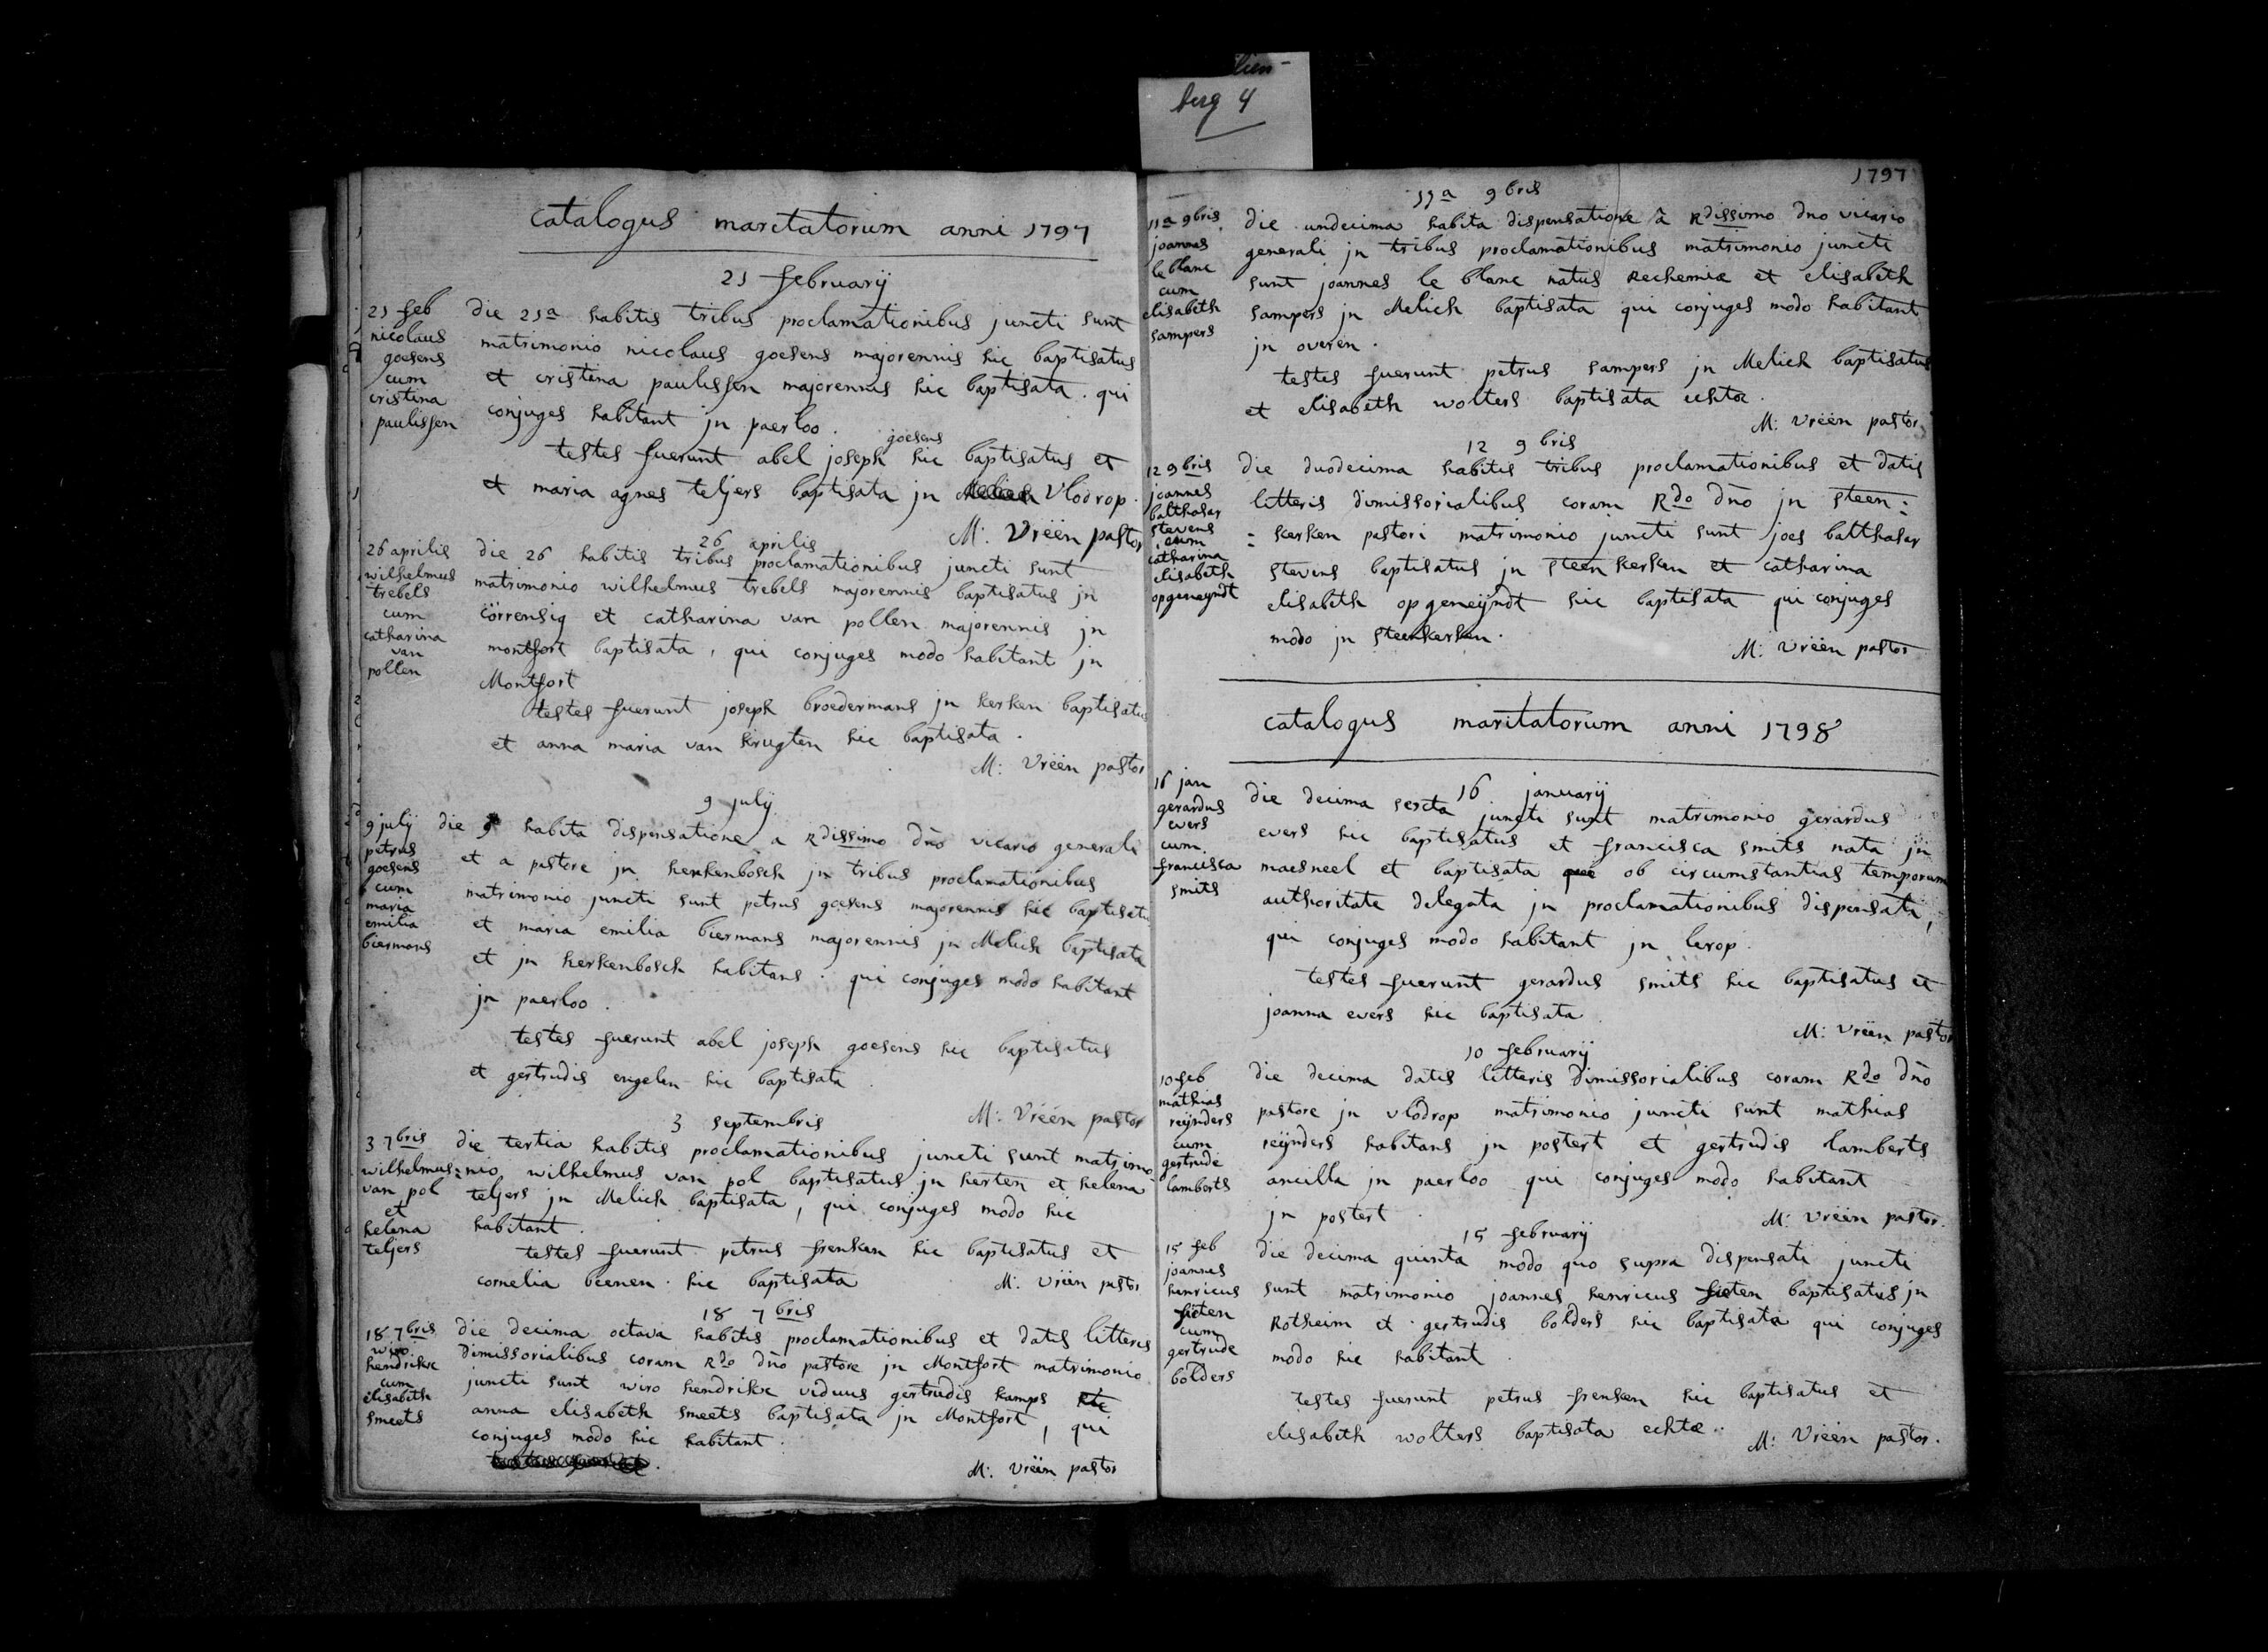 lien-
berg 4
catalogus maritatorum anni 1797
21 februarij
21 feb
nicolaus
goesens
cum
cristina
paulissen
die 21a habitis tribus proclamationibus juncti sunt
matrimonio nicolaus goesens majorennis hic baptisatus
et cristina paulissen majorennis hic baptisata. qui
conjuges habitant jn paerloo.
goesens
testes fuerunt abel joseph hic baptisatus et
et maria agnes teljers baptisata jn Melich Vlodrop.
M: Vrëën pastor
26 aprilis
26 aprilis
wilhelmus
trebels
cum
catharina
van
pollen
die 26 habitis tribus proclamationibus juncti sunt
matrimonio wilhelmus trebels majorennis baptisatus jn
cörrensig et catharina van pollen majorennis jn
montfort baptisata, qui conjuges modo habitant jn
Montfort
testes fuerunt joseph broedermans jn kerken baptisatus
et anna maria van krugten hic baptisata.
M: Vrëën pastor
9 julij
9 julij
petrus
goesens
cum
maria
emilia
biermans
die 9 habita dispensatione a Rdissimo dno vicario generali
et a pastore jn herkenbosch jn tribus proclamationibus
matrimonio juncti sunt petrus goesens majorennis hic baptisatu
et maria emilia biermans majorennis jn Melich baptisata
et jn herkenbosch habitans. qui conjuges modo habitant
jn paerloo.
testes fuerunt abel joseph goesens hic baptisatus
et gertrudis engelen hic baptisata.
M: Vrëën pastor
3 septembris
3 7bris
wilhelmus
van pol
et
helena
teljers
die tertia habitis proclamationibus juncti sunt matrimo
=nio wilhelmus van pol baptisatus jn herten et helena
teljers jn Melich baptisata, qui conjuges modo hic
habitant.
testes fuerunt petrus frensen hic baptisatus et
cornelia beenen hic baptisata
M: Vrëën pastor
18 7bris
18 7bris
wiro
hendrikx
cum
elisabeth
smeets
die decima octava habitis proclamationibus et datis litteris
dimissorialibus coram Rdo dno pastore jn Montfort matrimonio
juncti sunt wiro hendrikx viduus gertrudis kamps et
anna elisabeth smeets baptisata jn Montfort, qui
conjuges modo hic habitant.
M: Vrëën pastor
1797
11a 9bris
11a 9bris
joannes
le blanc
cum
elisabeth
sampers
die undecima habita dispensatione à Rdissimo dno vicario
generali jn tribus proclamationibus matrimonio juncti
sunt joannes le blanc natus Rechemiæ et elisabeth
sampers jn Melich baptisata qui conjuges modo habitant
jn overen.
testes fuerunt petrus sampers jn Melich baptisatus
et elisabeth wolters baptisata echtæ.
M: Vrëën pastor
12 9bris
12 9bris
joannes
balthasar
stevens
cum
catharina
elisabeth
opgeneyndt
die duodecima habitis tribus proclamationibus et datis
litteris dimissorialibus coram Rdo dno jn steen=
=kerken pastori matrimonio juncti sunt joes balthasar
stevens baptisatus jn steenkerken et catharina
elisabeth opgeneijndt hic baptisata qui conjuges
modo jn steenkerken.
M: Vrëën pastor
catalogus maritatorum anni 1798
16 januarij
16 jan
gerardus
evers
cum
francisca
smits
die decima sexta juncti sunt matrimonio gerardus
evers hic baptisatus et francisca smits nata jn
maesneel et baptisata qui ob circumstantias temporum
authoritate delegata jn proclamationibus dispensati,
qui conjuges modo habitant jn lerop.
testes fuerunt gerardus smits hic baptisatus et
joanna evers hic baptisata
M: Vrëën pastor
10 februarij
10 feb
mathias
reijnders
cum
gertrude
lamberts
die decima datis litteris dimissorialibus coram Rdo dno
pastore jn vlodrop matrimonio juncti sunt mathias
reijnders habitans jn postert et gertrudis lamberts
ancilla jn paerloo qui conjuges modo habitant
jn postert.
M: Vrëën pastor.
15 februarij
15 feb
joannes
henricus
cum
gertrude
bolders
die decima quinta modo quo supra dispensati juncti
sunt matrimonio joannes henricus baptisatus jn
Rotheim et gertrudis bolders hic baptisata qui conjuges
modo hic habitant.
testes fuerunt petrus frensen hic baptisatus et
elisabeth wolters baptisata echtæ.
M: Vrëën pastor.